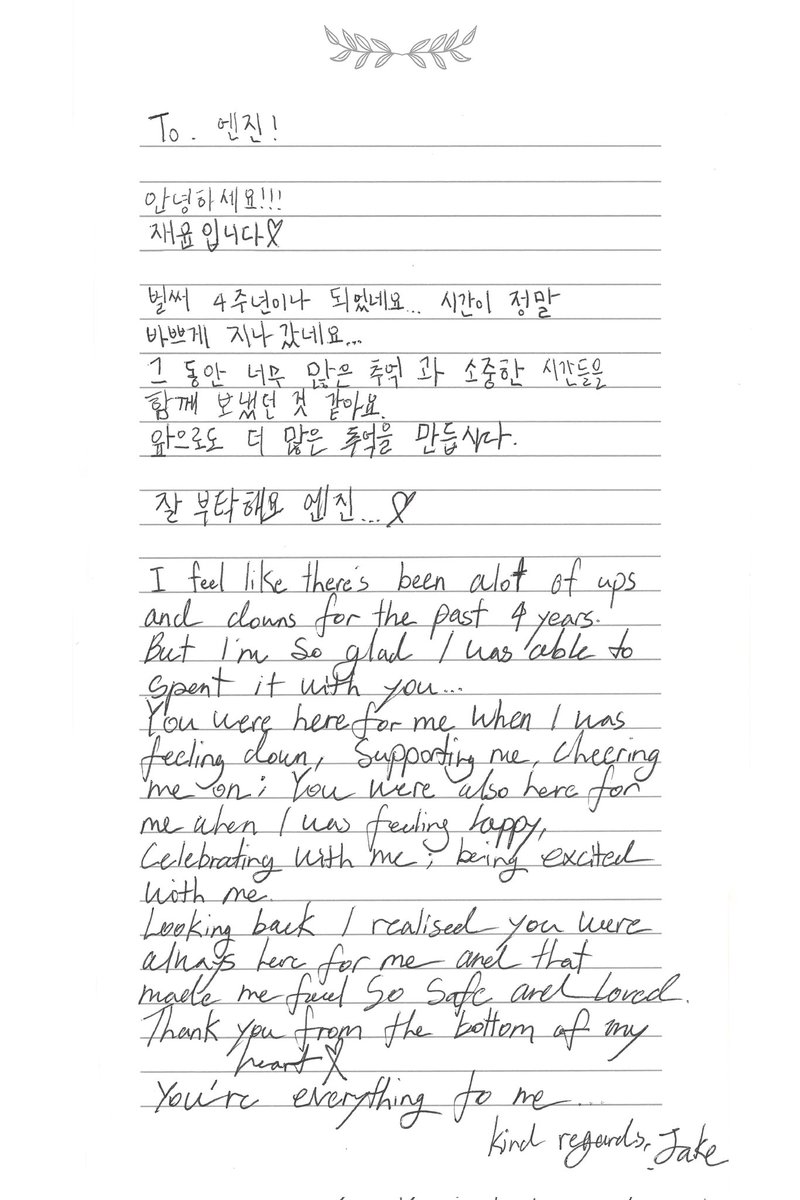 To. 엔진!
안녕하세요!!!
재윤입니다♡
벌써 4주년이나 되었네요... 시간이 정말
바쁘게 지나갔네요...
그 동안 너무 많은 추억 과 소중한 시간들을
함께 보냈던 것 같아요.
앞으로도 더 많은 추억을 만듭시다.
잘 부탁해요 엔진...♡
I feel like there's been alot of ups
and downs for the past 4 years.
But I'm so glad I was able to
spent it with you...
You were here for me when I was
feeling down, supporting me, cheering
me on; You were also here for
me when I was feeling happy,
Celebrating with me; being excited
with me.
Looking back I realised you were
always here for me and that
made me feel so safe and loved.
Thank you from the bottom of my
heart♡
You're everything to me...
Kind regards, Jake